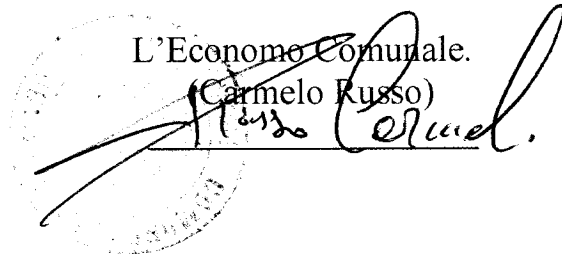 L'Economo Comunale.
(Carmelo Russo)
Russo Carmel.